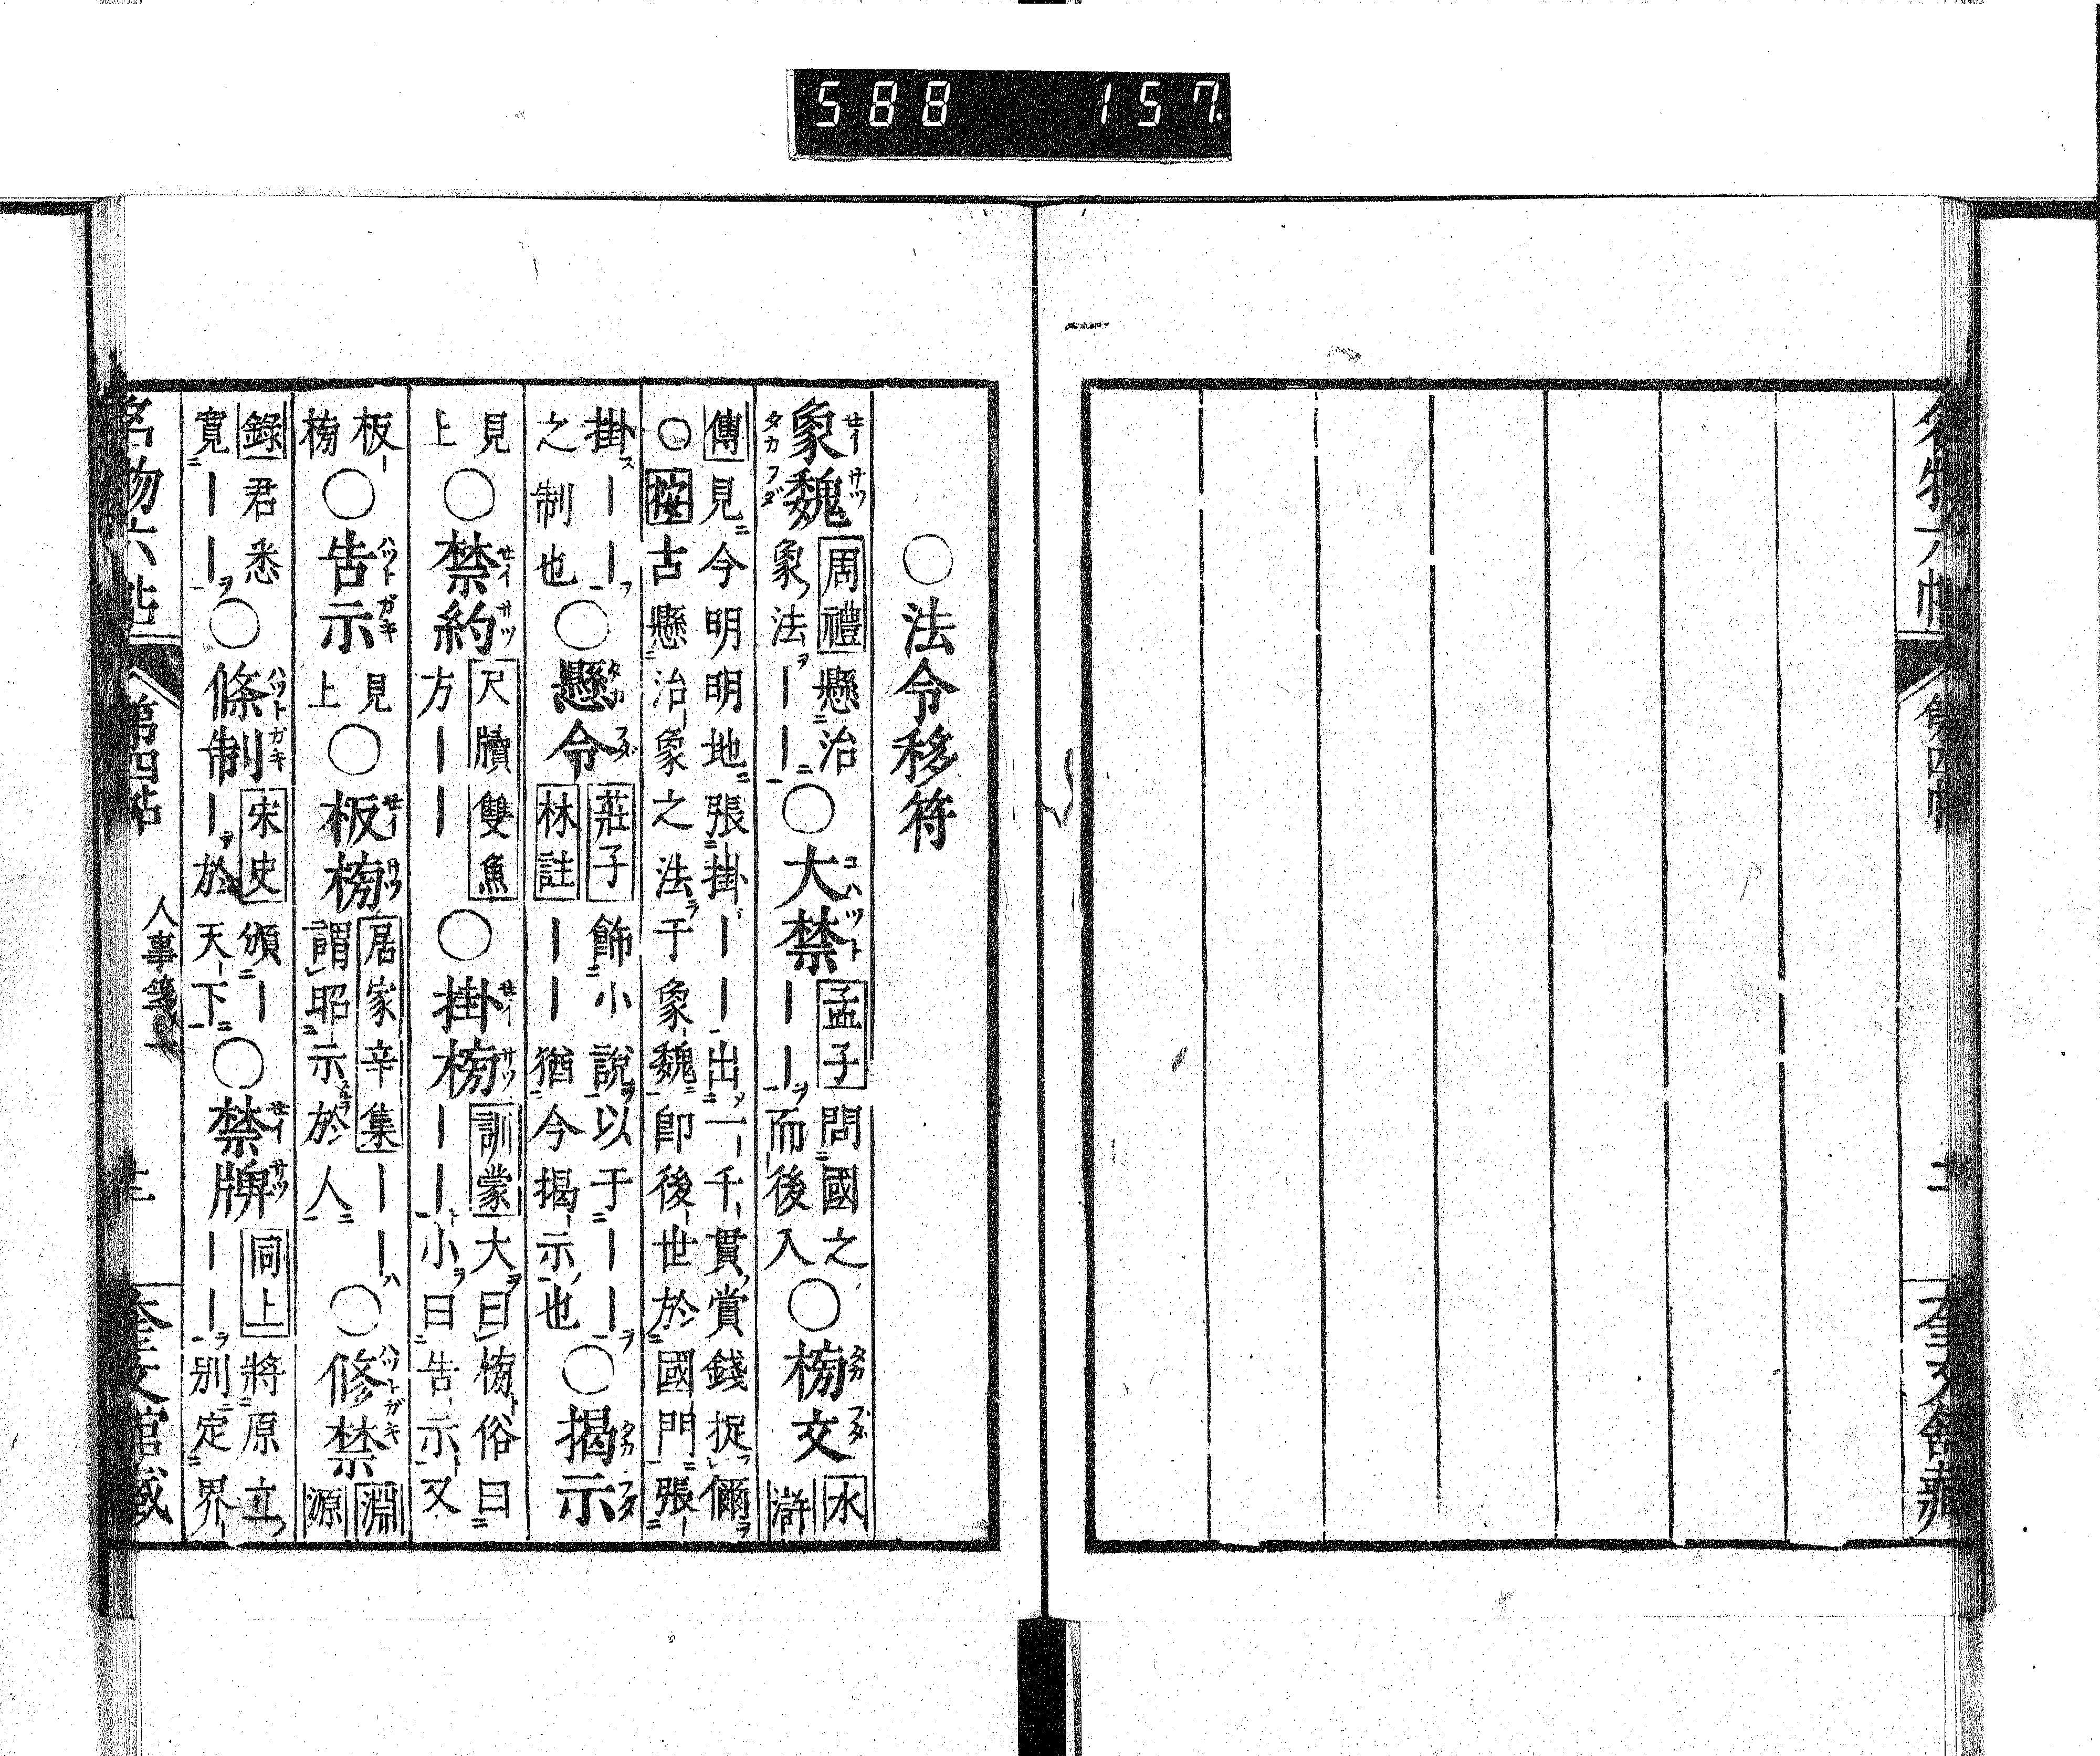 588 157
名物六帖 第四帖 奎文館藏
○法令移符
象魏周禮懸治象法｜｜○大禁孟子問國之｜｜而後入○榜文水滸
傳見今明明地張掛｜｜出一千貫賞錢捉儞
○按古懸治象之法于象魏即後世於國門張
掛｜｜之制也○懸令莊子林註飾小說以于｜｜｜｜猶今揭示也○揭示
見上○禁約尺牘雙魚方｜｜○掛榜訓蒙大曰榜俗曰｜｜小曰告示又
板榜○告示見上○板榜居家辛集｜｜謂昭示於人○修禁淵源
錄君悉寬｜｜○條制宋史頒｜｜於天下○禁牌同上將原立｜｜別定界
名物六帖 第四帖 人事箋 奎文館藏